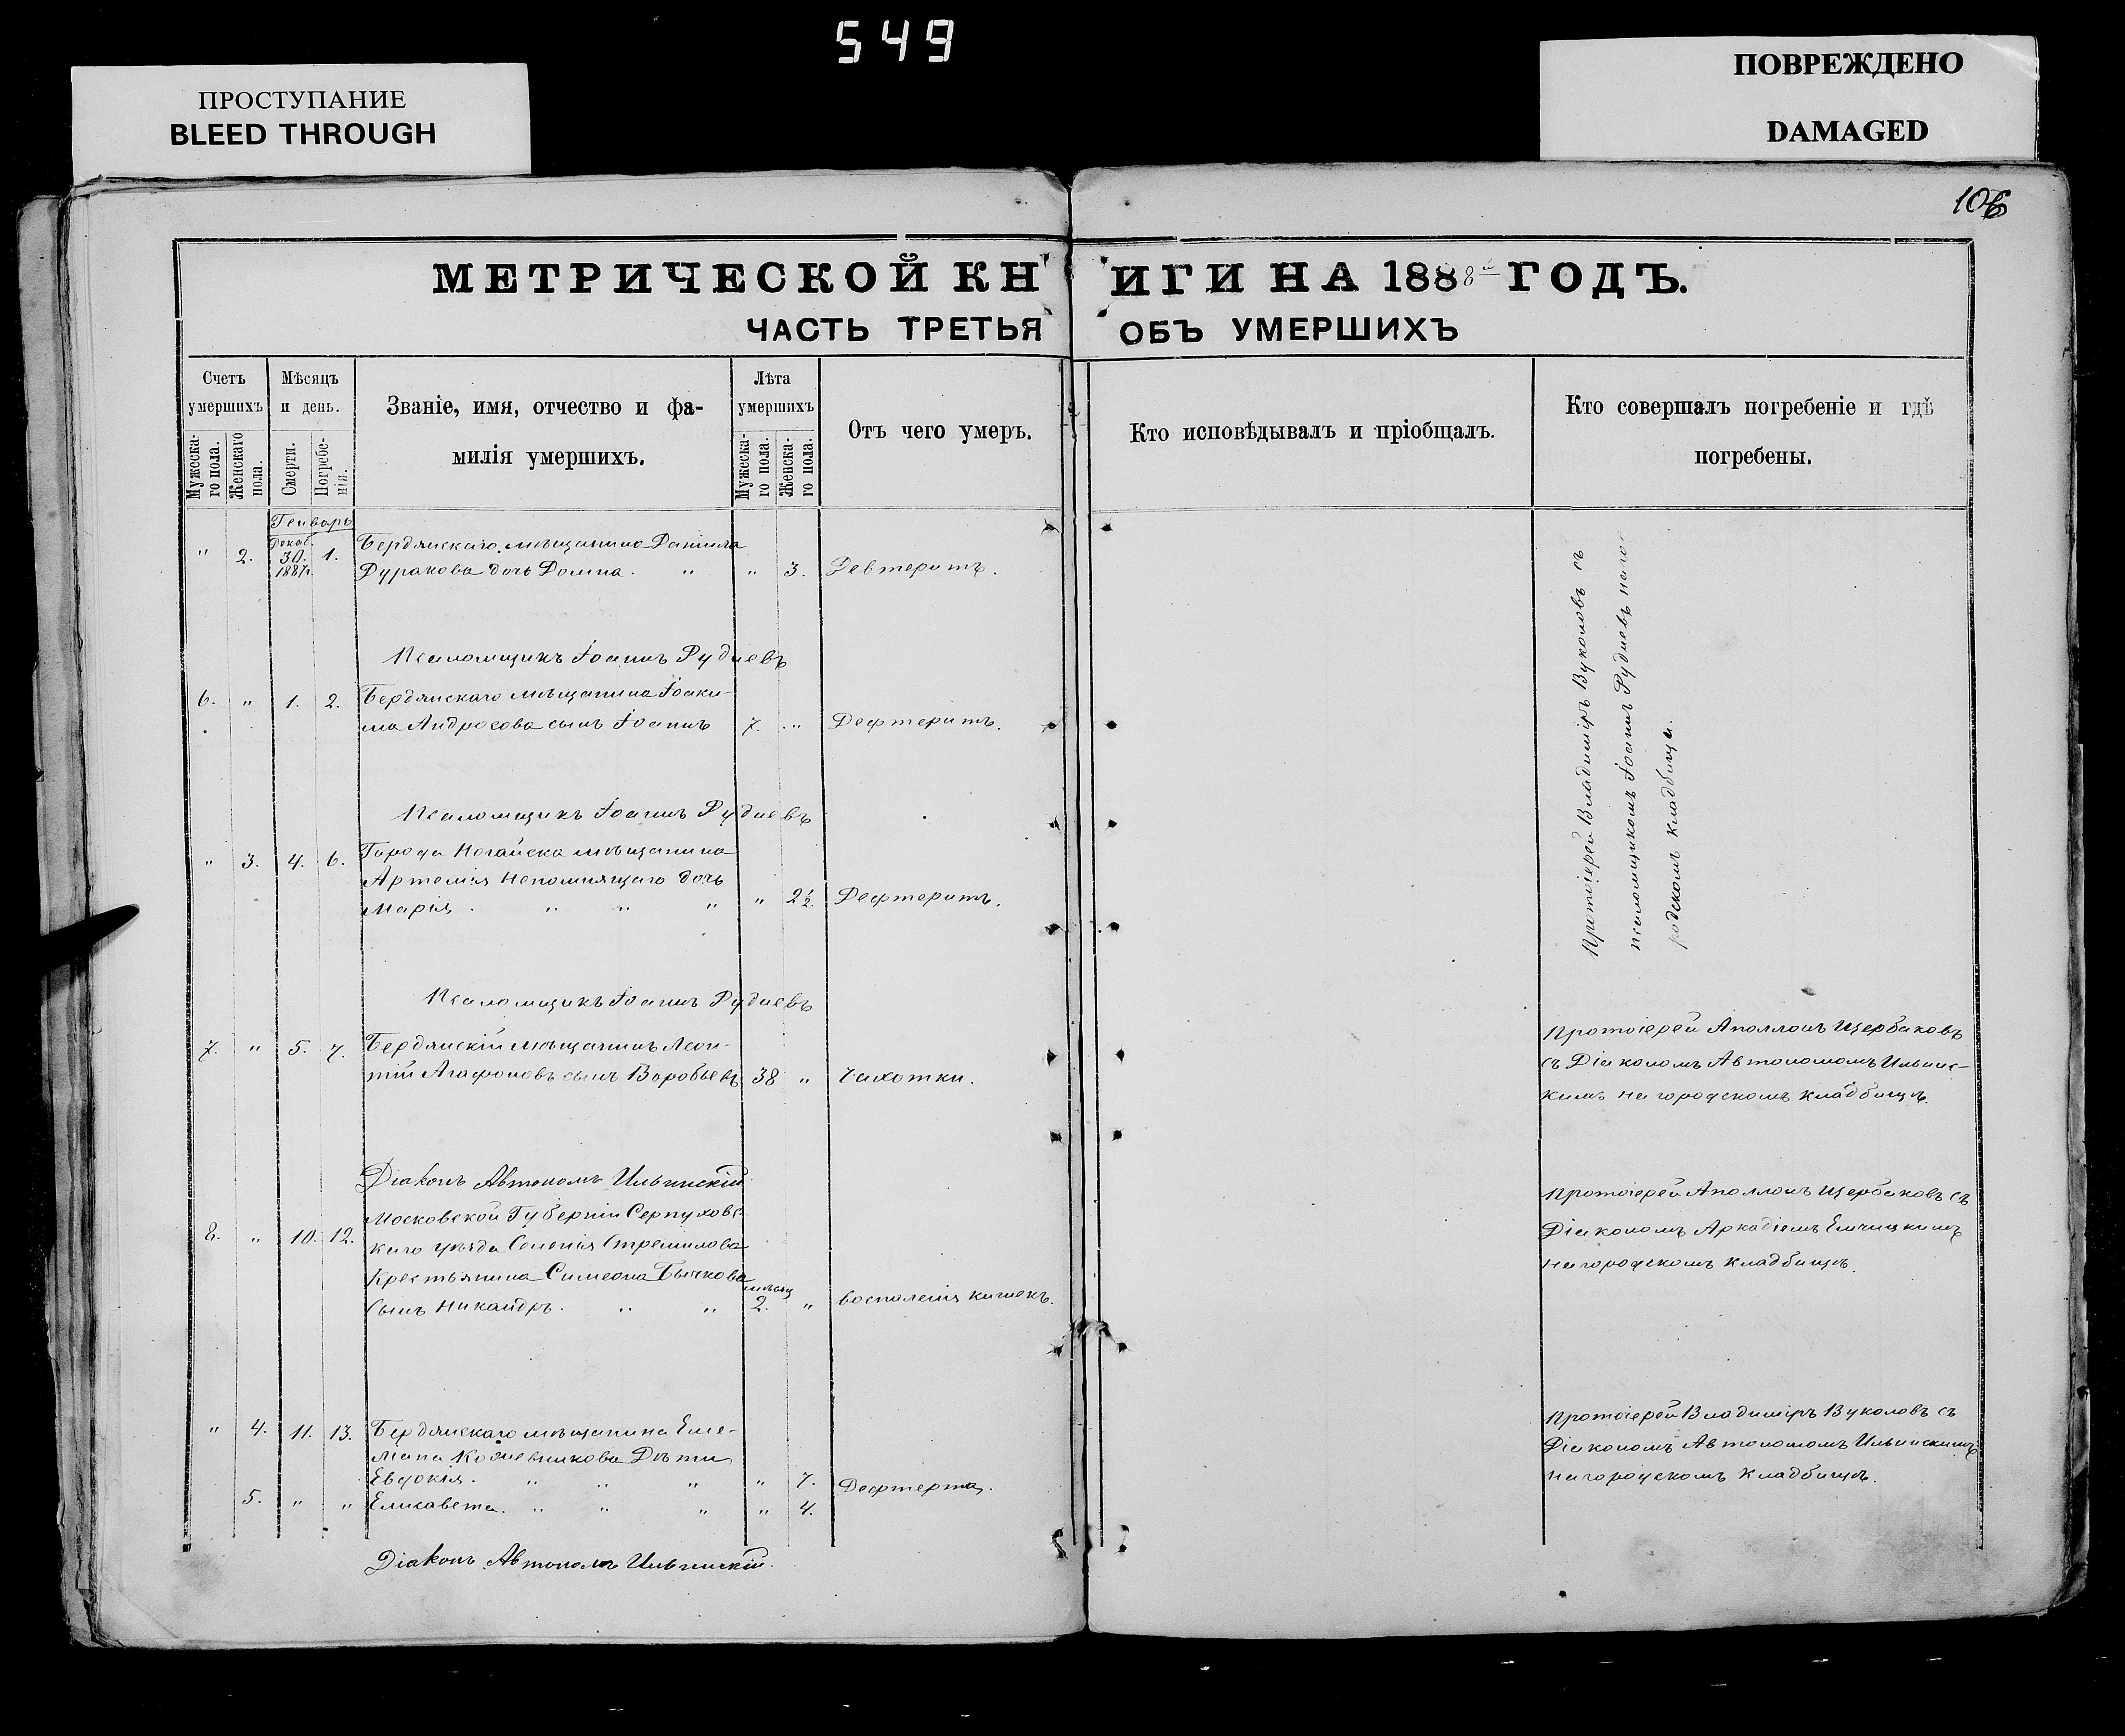 549
ПРОСТУПАНИЕ
BLEED THROUGH
ПОВРЕЖДЕНО
DAMAGED
106
МЕТРИЧЕСКОЙ КНИГИ НА 1888 ГОДЪ.
ЧАСТЬ ТРЕТЬЯ ОБЪ УМЕРШИХЪ
Счетъ умершихъ
Мужеска-го пола.
Женскаго пола.
Мѣсяцъ и день.
Смерти.
Погребе-нія.
Званіе, имя, отчество и фа-
милія умершихъ.
Лѣта умершихъ
Мужеска-го пола.
Женска-го пола.
Отъ чего умеръ.
Кто исповѣдывалъ и пріобщалъ.
Кто совершалъ погребеніе и гдѣ
погребены.
Генварь
" 2. Декаб. 30. 1887г. 1. Бердянскаго мѣщанина Даніила
Дуракова дочь Домна. " " 3. Девтеритъ.
Псаломщикъ Іоаннъ Рудневъ
6. " 1. 2. Бердянскаго мѣщанина Іоаки-
ма Андросова сынъ Іоаннъ 7. " Дефтеритъ.
Псаломщикъ Іоаннъ Рудневъ
" 3. 4. 6. Города Ногайска мѣщанина
Артемія Непомнящаго дочь
Марія. " " " " 2½. Дефтеритъ.
Протоіерей Владиміръ Вуколовъ съ
псаломщикомъ Іоаннъ Рудневъ на го-
родскомъ кладбищѣ.
Псаломщикъ Іоаннъ Рудневъ
7. " 5. 7. Бердянскій мѣщанинъ Леон-
тій Агафоновъ сынъ Воробьевъ 38 " Чахотки.
Протоіерей Аполлонъ Щербаковъ
съ Діакономъ Автономомъ Ильинс-
кимъ на городскомъ кладбищѣ.
Діаконъ Автономъ Ильинскій
8. " 10. 12. Московской Губерніи Серпуховс-
каго уѣзда Селенія Стремилова
Крестьянина Симеона Бычкова
сынъ Никандръ. " " мѣсяц 2. " воспаленія кишекъ.
Протоіерей Аполлонъ Щербаковъ съ
Діакономъ Аркадіемъ
на городскомъ кладбищѣ.
" 4. 11. 13. Бердянскаго мѣщанина Еме-
ліана Кожевникова Дѣти
Евдокія. " " " " 7. Дефтерта.
5. " " Елисавета. " " " " 4.
Протоіерей Владиміръ Вуколовъ съ
Діакономъ Автономомъ Ильинскимъ
на городскомъ кладбищѣ.
Діаконъ Автономъ Ильинскій.